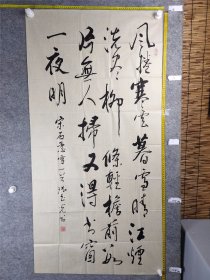 风卷寒云暮雪晴江烟
洗尽柳條轻檐前数
片無人掃又得书窗
一夜明